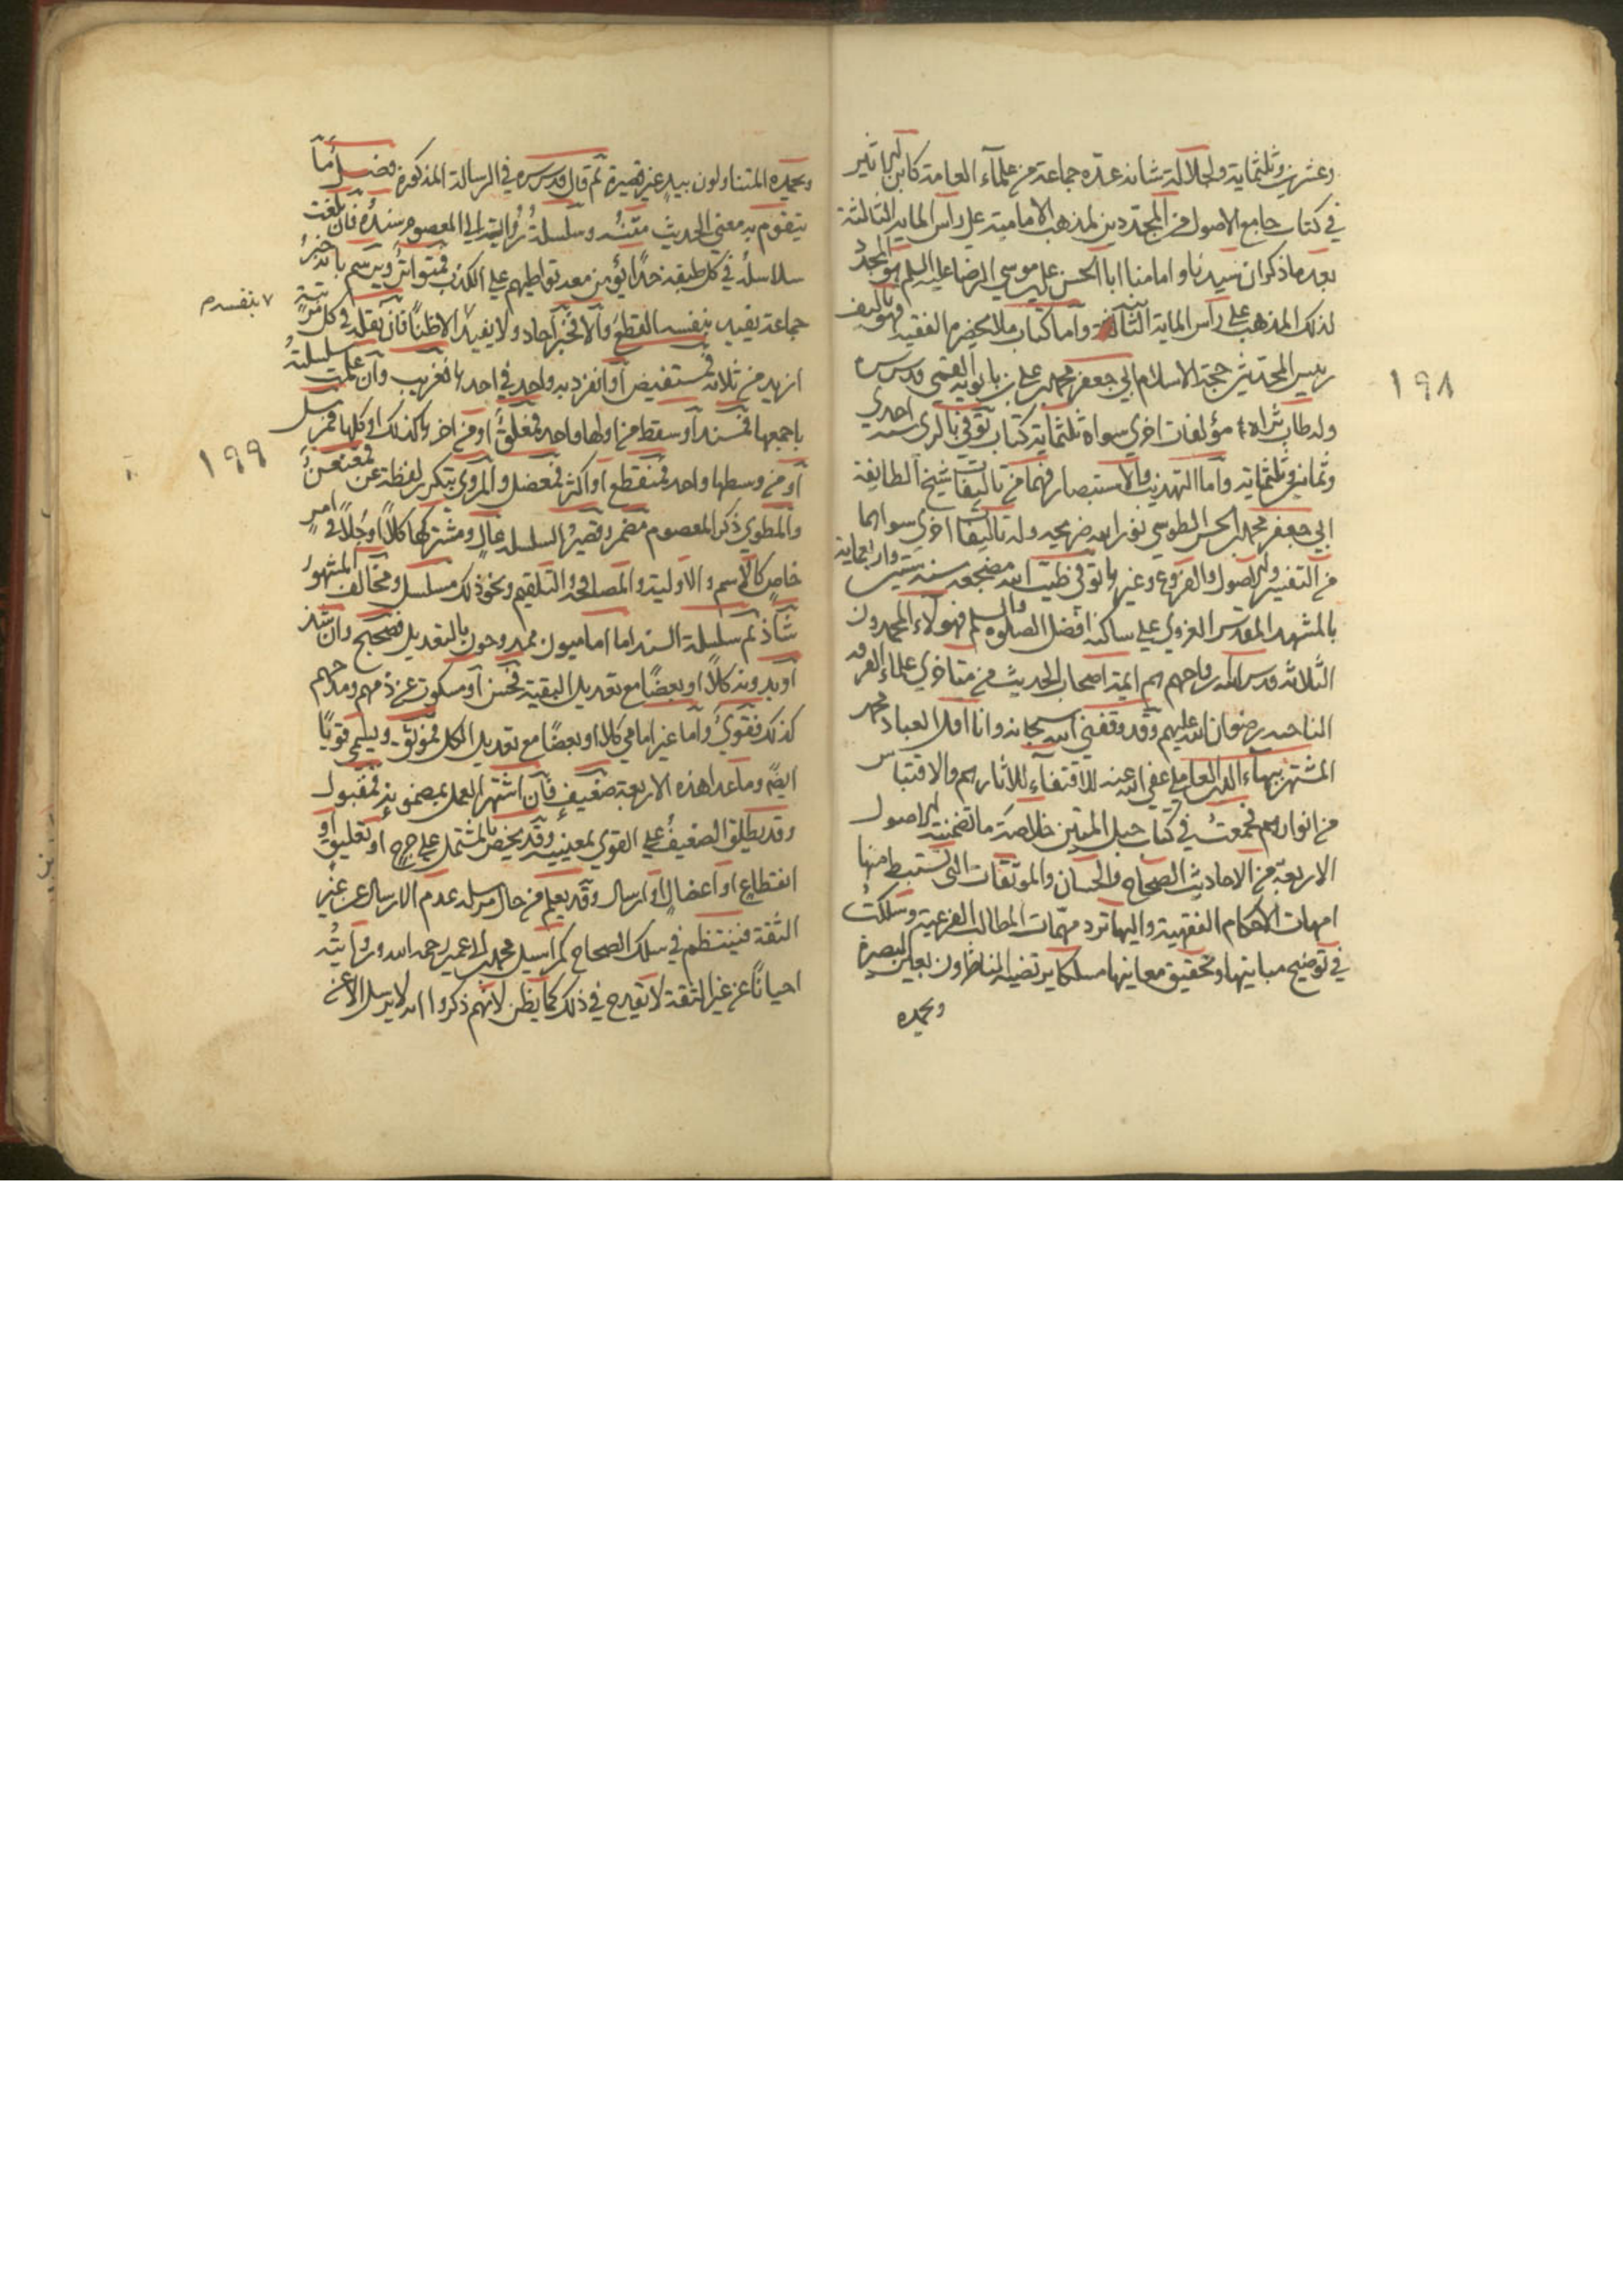 وعشرين وثلثمايه ولجلالة شانه عدّه جماعة من علمآء العامة كابن الاثير
في كتاب جامع الاصول من المجددين لمذهب الامامية على راس المايه الثالثة
بعد ما ذكر ان سيدنا وامامنا ابا الحسن علي بن موسي الرضا عليه السلم هو المجدد
لذلك المذهب على رأس الماية الثانية واما كتاب من لا يحضره الفقيه فهو تاليف
رييس المحدثين حجة الاسلام ابي جعفر محمد بن علي بن بابويه القمي قدس سره
وله طاب ثراه مؤلفات اخري سواه تقارب ثلثماية كتاب توفي بالري سنه احدي
وثمانين وثلثمايه واما التهذيب والاستبصار فهما من تاليفات شيخ الطايفة
ابي جعفر محمد بن الحسن الطوسي نور الله ضريحه وله تاليفات اخري سواهما
من التفسير والاصول والفروع وغيرها توفي طيب الله مضجعه سنه ستين واربعماية
بالمشهد المقدس الغروي على ساكنه افضل الصلوة والسلم فهولاء المحمدون
الثلاثة قدس الله ارواحهم هم ايمة اصحاب الحديث من متاخري علماء الفرقه
الناجيه رضوان الله عليهم وقد وفقني الله سبحانه وانا اقل العباد محمد
المشتهر ببهاء الدين العاملي عفي الله عنه للاقتفآء لاثارهم والاقتباس
من انوارهم فجمعت في كتاب حبل المتين خلاصة ما تضمنته الاصول
الاربعة من الاحاديث الصحاح والحسان والموثقات التي تستنبط منها
امهات الاحكام الفقهية واليها ترد مهمات المطالب الفرعية وسلكت
في توضيح مبانيها وتحقيق معانيها مسلكا يرتضيه الناظرون بعين البصيرة
ويحمده
١٩٨
ويحمده المتناولون بيد غير قصيرة ثم قال قدس سره في الرسالة المذكورة فصل ما
يتقوم به معني الحديث متنه وسلسلة رواته الي المعصوم سنده فان بلغت
سلاسله في كل طبقه حدًا يؤمن معه تواطيهم علي الكذب فمتواتر ويرسم بانه خبر
جماعة يفيد بنفسه القطع والا فخبر آحاد ولا يفيد الا ظنًا فان نقله في كل مرتبة
٧ بنفسه م
ازيد من ثلاثه فمستفيض او انفرد به واحد في احدها فغريب وان علمت سلسلته
باجمعها فمسند او سقط من اولها واحد فمعلق او من اخرها كذلك او كلها فمرسل
او من وسطها واحد فمنقطع او اكثر فمعضل والمروي بتكرير لفظة عن فمعنعن
والمطوي ذكر المعصوم مضمر وقصير السلسله عال ومشتركها كلًا او جلًا في امر
خاص كالاسم والاولية والمصافحة والتلقيم ونحو ذلك مسلسل ومخالف المشهور
شاذ ثم سلسلة السند اما اماميون ممدوحون بالتعديل فصحيح وان شذ
او بدونه كلًا او بعضًا مع تعديل البقية فحسن او مسكوت عن ذمهم ومدحهم
كذلك فقوي واما غير امامي كلا او بعضًا مع تعديل الكل فموثق ويسمى قويًا
ايضًا وما عدا هذه الاربعة ضعيف فان اشتهر العمل بمضمونه فمقبول
وقد يطلق الضعيف على القوي بمعنييه وقد يخص بالمشتمل علي جرح او تعليق او
انقطاع او اعضال او ارسال وقد يعلم من حال مرسله عدم الارسال عن غير
الثقة فينتظم في سلك الصحاح كمراسيل محمد بن ابي عمير رحمه الله وروايته
احيانًا عن غير الثقة لا تقدح في ذلك كما يظن لانهم ذكروا انه لا يرسل الا عن
١٩٩